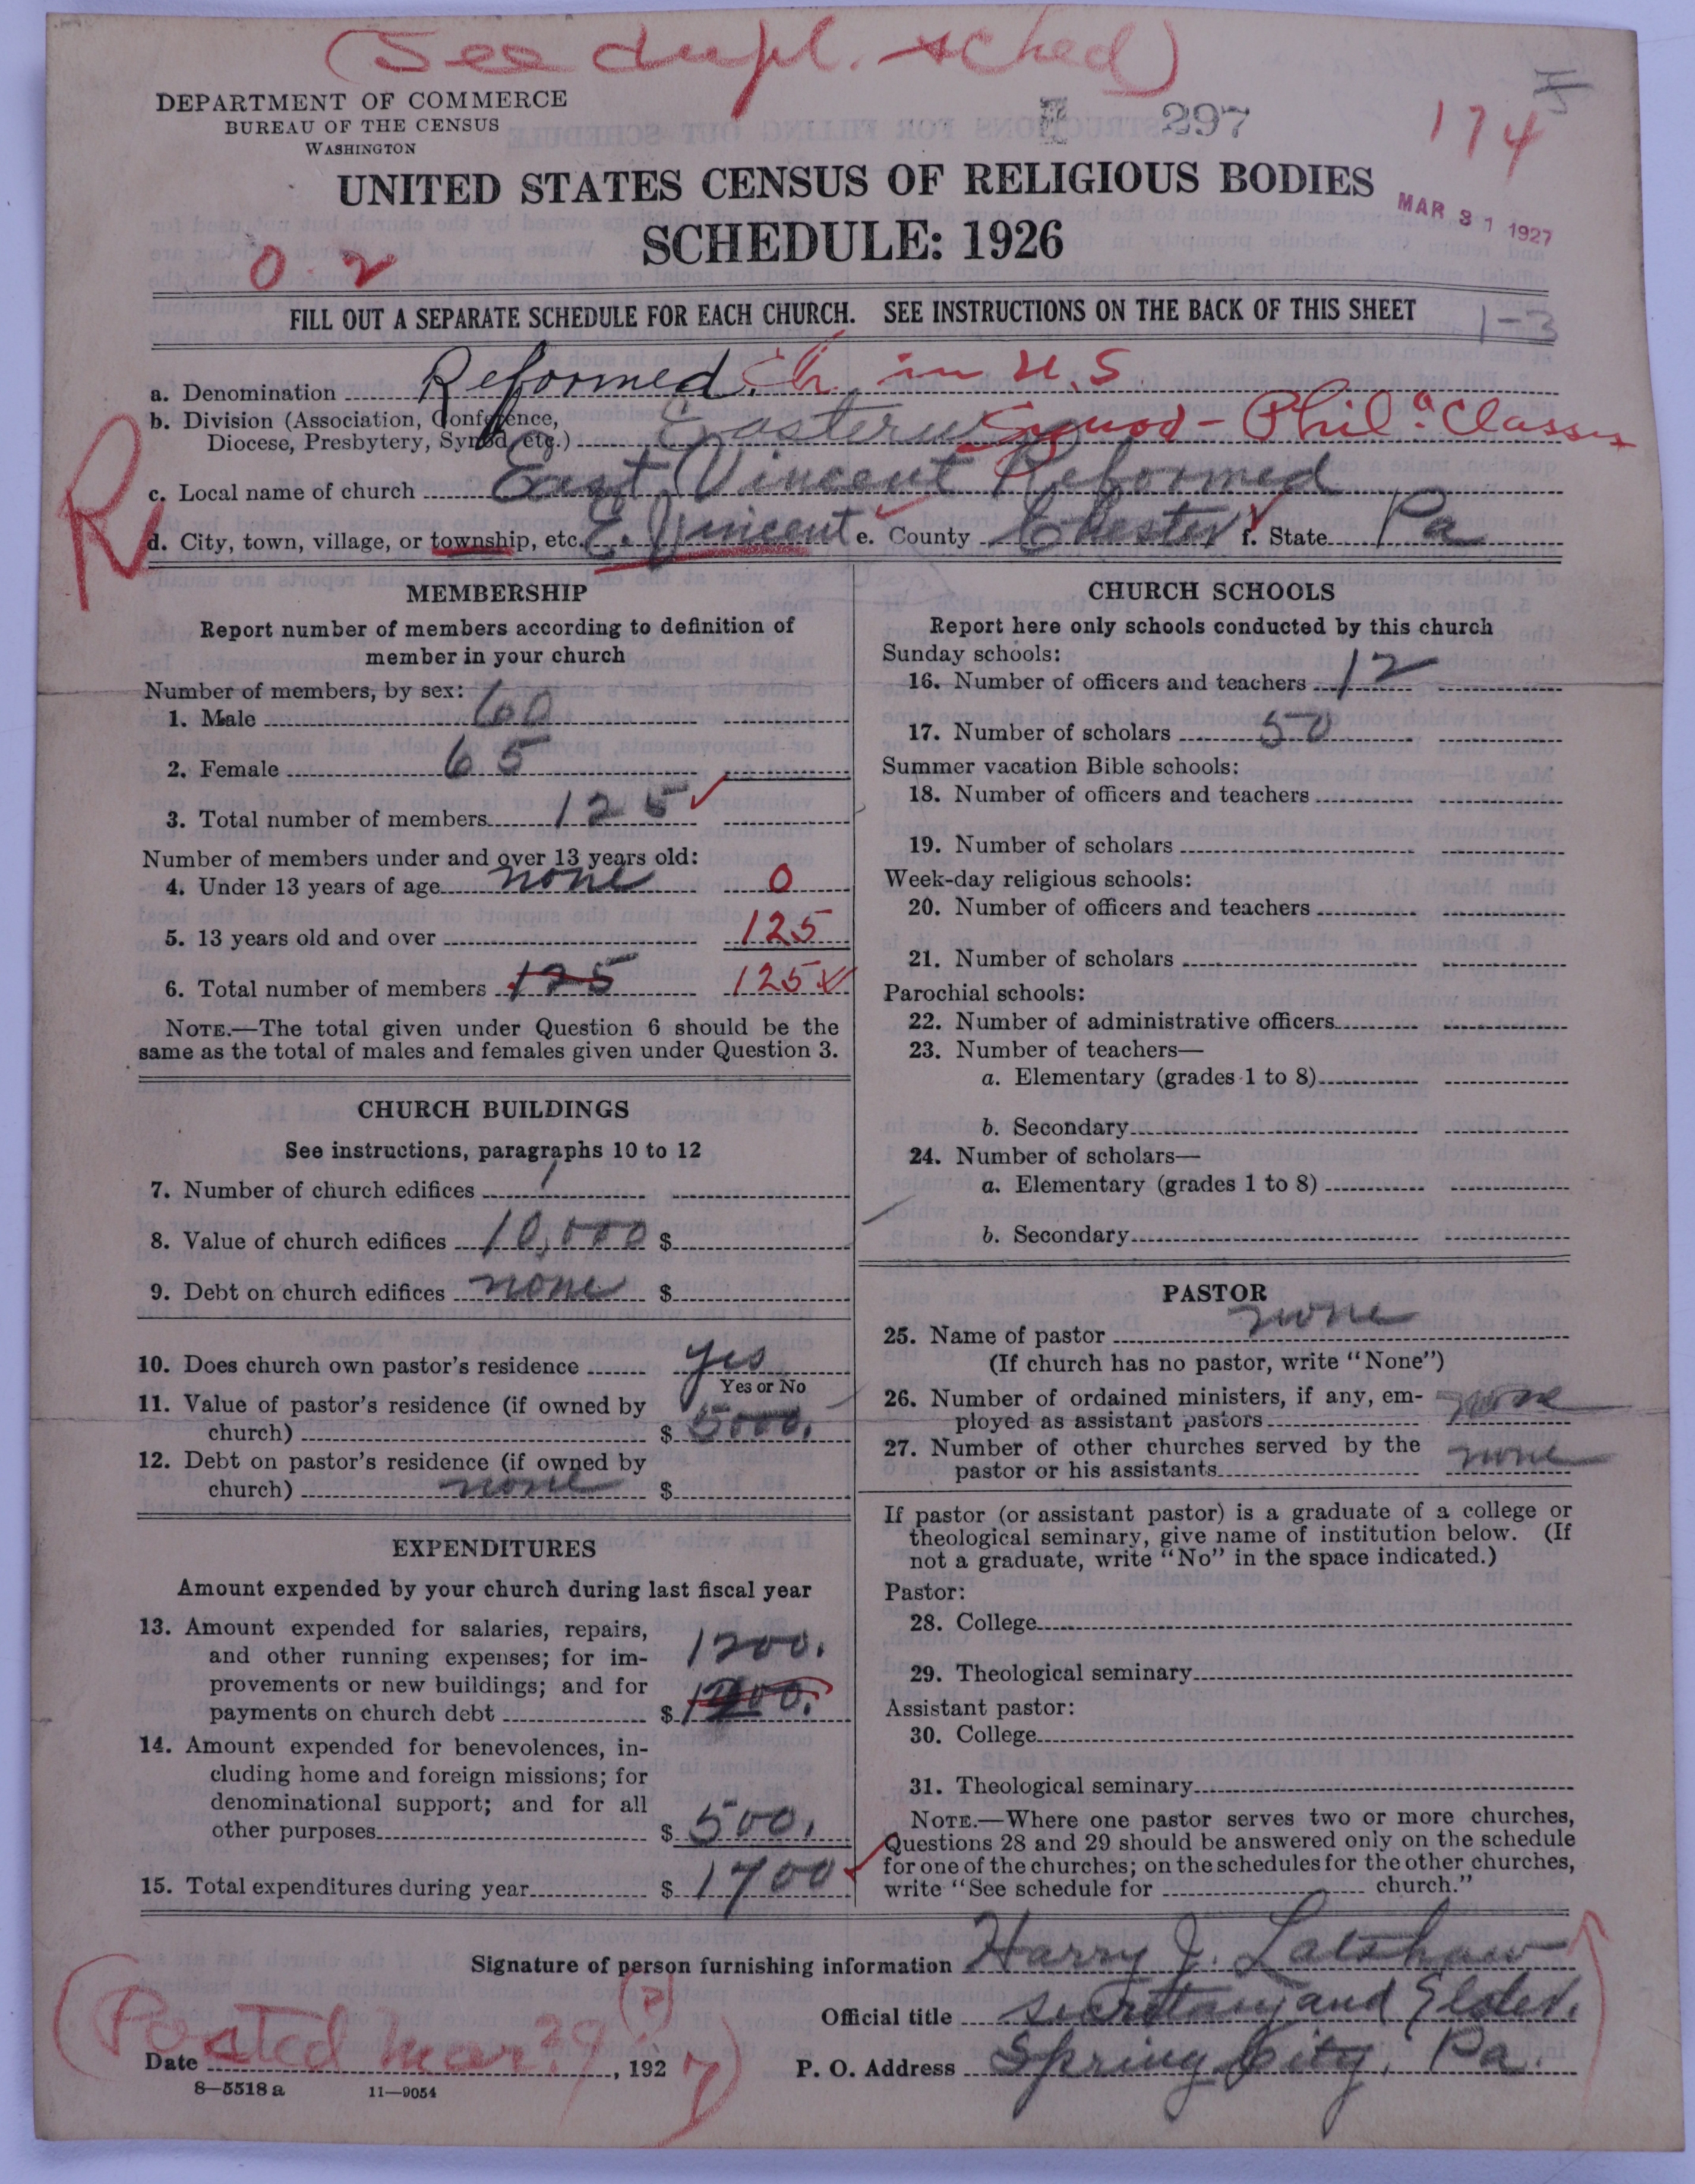 (See dupl. sched)
DEPARTMENT OF COMMERCE
BUREAU OF THE CENSUS
WASHINGTON
297
174
UNITED STATES CENSUS OF RELIGIOUS BODIES
SCHEDULE: 1926
MAR 31 1927
0.2
FILL OUT A SEPARATE SCHEDULE FOR EACH CHURCH. SEE INSTRUCTIONS ON THE BACK OF THIS SHEET
1-3
a. Denomination Reformed Ch. in U.S
b. Division (Association, Conference,
Diocese, Presbytery, Synod, etc.) Eastern Synod - Phila. Classis
c. Local name of church East Vincent Reformed
d. City, town, village, or township, etc. E. Vincent e. County Chester f. State Pa
R
MEMBERSHIP
Report number of members according to definition of
member in your church
Number of members, by sex:
1. Male 60
2. Female 65
3. Total number of members 125
Number of members under and over 13 years old:
4. Under 13 years of age none 0
5. 13 years old and over 125
6. Total number of members 125 125
NOTE.—The total given under Question 6 should be the
same as the total of males and females given under Question 3.
CHURCH BUILDINGS
See instructions, paragraphs 10 to 12
7. Number of church edifices 1
8. Value of church edifices 10,000 $
9. Debt on church edifices none $
10. Does church own pastor's residence yes
Yes or No
11. Value of pastor's residence (if owned by
church) $ 5000.
12. Debt on pastor's residence (if owned by
church) none $
EXPENDITURES
Amount expended by your church during last fiscal year
13. Amount expended for salaries, repairs,
and other running expenses; for im- 1200.
provements or new buildings; and for
payments on church debt $ 1200.
14. Amount expended for benevolences, in-
cluding home and foreign missions; for
denominational support; and for all
other purposes $ 500.
15. Total expenditures during year $ 1700
CHURCH SCHOOLS
Report here only schools conducted by this church
Sunday schools:
16. Number of officers and teachers 12
17. Number of scholars 50
Summer vacation Bible schools:
18. Number of officers and teachers
19. Number of scholars
Week-day religious schools:
20. Number of officers and teachers
21. Number of scholars
Parochial schools:
22. Number of administrative officers
23. Number of teachers—
a. Elementary (grades 1 to 8)
b. Secondary
24. Number of scholars—
a. Elementary (grades 1 to 8)
b. Secondary
PASTOR
25. Name of pastor none
(If church has no pastor, write "None")
26. Number of ordained ministers, if any, em-
ployed as assistant pastors none
27. Number of other churches served by the
pastor or his assistants none
If pastor (or assistant pastor) is a graduate of a college or
theological seminary, give name of institution below. (If
not a graduate, write "No" in the space indicated.)
Pastor:
28. College
29. Theological seminary
Assistant pastor:
30. College
31. Theological seminary
NOTE.—Where one pastor serves two or more churches,
Questions 28 and 29 should be answered only on the schedule
for one of the churches; on the schedules for the other churches,
write "See schedule for church."
Signature of person furnishing information Harry J. Latshaw
Official title Secretary and Elder.
(Posted Mar. 29 (?)
Date , 1927)
P. O. Address Spring City, Pa.
8—5518 a 11—9054